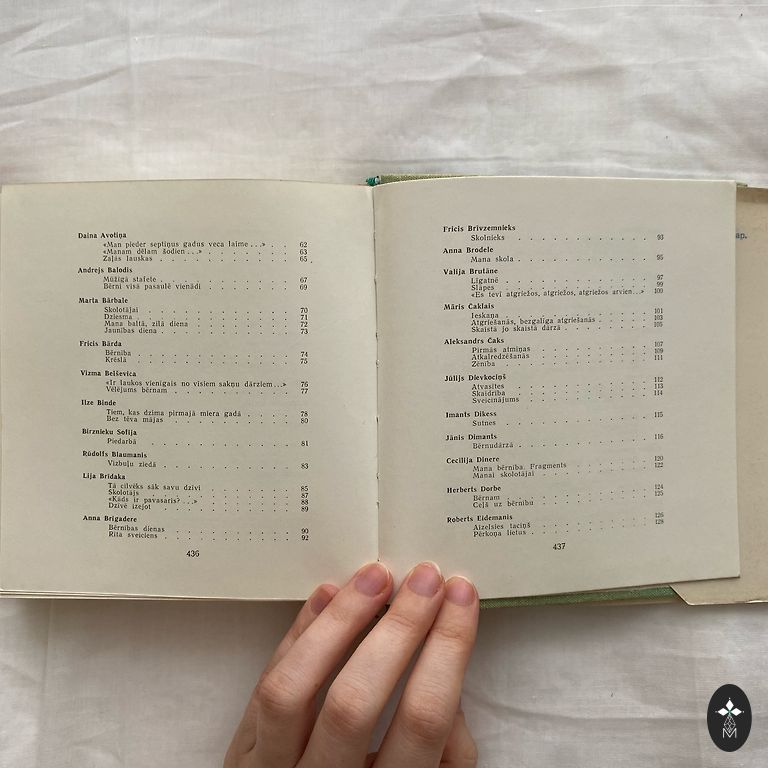 Daina Avotiņa
«Man pieder septiņus gadus veca laime...» . . 62
«Manam dēlam šodien...» . . . . . . . 63
Zaļās lauskas . . . . . . . . . . . 65
Andrejs Balodis
Mūžīgā stafete . . . . . . . . . . . 67
Bērni visā pasaulē vienādi . . . . . . . 69
Marta Bārbale
Skolotājai . . . . . . . . . . . . 70
Dziesma . . . . . . . . . . . . . 71
Mana baltā, zilā diena . . . . . . . . 72
Jaunības diena . . . . . . . . . . . 73
Fricis Bārda
Bērnība . . . . . . . . . . . . . 74
Krēslā . . . . . . . . . . . . . 75
Vizma Belševica
«Ir laukos vienīgais no visiem sakņu dārziem...» 76
Vēlējums bērnam . . . . . . . . . . 77
Ilze Binde
Tiem, kas dzima pirmajā miera gadā . . . . 78
Bez tēva mājas . . . . . . . . . . . 80
Birznieku Sofija
Piedarbā . . . . . . . . . . . . . 81
Rūdolfs Blaumanis
Vizbuļu ziedā . . . . . . . . . . . 83
Lija Brīdaka
Tā cilvēks sāk savu dzīvi . . . . . . . 85
Skolotājs . . . . . . . . . . . . . 87
«Kāds ir pavasaris?...» . . . . . . . . 88
Dzīvē izejot . . . . . . . . . . . . 89
Anna Brigadere
Bērnības dienas . . . . . . . . . . . 90
Rīta sveiciens . . . . . . . . . . . 92
436
Fricis Brīvzemnieks
Skolnieks . . . . . . . . . . . . . 93
Anna Brodele
Mana skola . . . . . . . . . . . . 95
Valija Brutāne
Līgatnē . . . . . . . . . . . . . 97
Slāpes . . . . . . . . . . . . . 99
«Es tevī atgriežos, atgriežos, atgriežos arvien...» 100
Māris Čaklais
Ieskaņa . . . . . . . . . . . . . 101
Atgriešanās, bezgalīga atgriešanās . . . . . 103
Skaistā jo skaistā dārzā . . . . . . . . 105
Aleksandrs Čaks
Pirmās atmiņas . . . . . . . . . . . 107
Atkalredzēšanās . . . . . . . . . . . 109
Zēnība . . . . . . . . . . . . . 111
Jūlijs Dievkociņš
Atvasītes . . . . . . . . . . . . . 112
Skaidrība . . . . . . . . . . . . . 113
Sveicinājums . . . . . . . . . . . . 114
Imants Dikess
Sutnes . . . . . . . . . . . . . 115
Jānis Dimants
Bērnudārzā . . . . . . . . . . . . 116
Cecilija Dinere
Mana bērnība. Fragments . . . . . . . 120
Manai skolotājai . . . . . . . . . . 122
Herberts Dorbe
Bērnam . . . . . . . . . . . . . 124
Ceļš uz bērnību . . . . . . . . . . . 125
Roberts Eidemanis
Aizelsies taciņš . . . . . . . . . . . 126
Pērkoņa lietus . . . . . . . . . . . 128
437
ap.
M